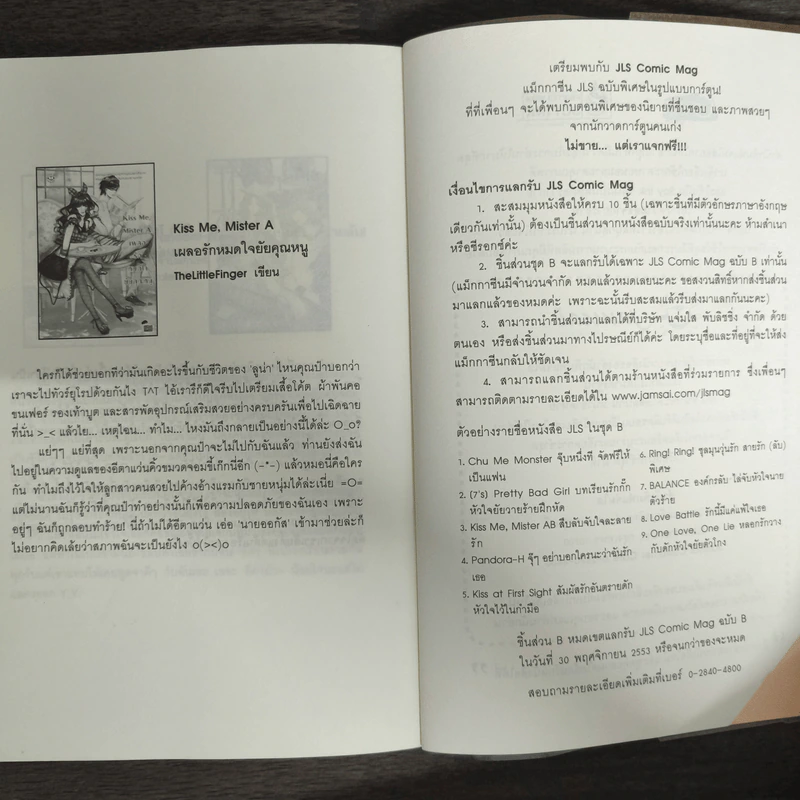 Kiss Me,
Mister A
Kiss Me, Mister A
เผลอรักหมดใจยัยคุณหนู
TheLittleFinger เขียน
ใครก็ได้ช่วยบอกทีว่ามันเกิดอะไรขึ้นกับชีวิตของ 'ลูน่า' ไหนคุณป๋าบอกว่า
เราจะไปทัวร์ยุโรปด้วยกันไง T^T ไอ้เรารึก็ดีใจรีบไปเตรียมเสื้อโค้ต ผ้าพันคอ
ขนเฟอร์ รองเท้าบูต และสารพัดอุปกรณ์เสริมสวยอย่างครบครันเพื่อไปเฉิดฉาย
ที่นั่น >_< แล้วไย... เหตุไฉน... ทำไม... ไหงมันถึงกลายเป็นอย่างนี้ได้ล่ะ O_o?
แย่ๆๆ แย่ที่สุด เพราะนอกจากคุณป๋าจะไม่ไปกับฉันแล้ว ท่านยังส่งฉัน
ไปอยู่ในความดูแลของอีตาแว่นคิ้วขมวดจอมขี้เก๊กนี่อีก (-*-) แล้วหมอนี่คือใคร
กัน ทำไมถึงไว้ใจให้ลูกสาวคนสวยไปค้างอ้างแรมกับชายหนุ่มได้ล่ะเนี่ย =O=
แต่ไม่นานฉันก็รู้ว่าที่คุณป๋าทำอย่างนั้นก็เพื่อความปลอดภัยของฉันเอง เพราะ
อยู่ๆ ฉันก็ถูกลอบทำร้าย! นี่ถ้าไม่ได้อีตาแว่น เอ๋อ 'นายออกัส' เข้ามาช่วยล่ะก็
ไม่อยากคิดเล้ยว่าสภาพฉันจะเป็นยังไง o(><)o
เตรียมพบกับ JLS Comic Mag
แม็กกาซีน JLS ฉบับพิเศษในรูปแบบการ์ตูน!
ที่ที่เพื่อนๆ จะได้พบกับตอนพิเศษของนิยายที่ชื่นชอบ และภาพสวยๆ
จากนักวาดการ์ตูนคนเก่ง
ไม่ขาย... แต่เราแจกฟรี!!!
เงื่อนไขการแลกรับ JLS Comic Mag
1. สะสมมุมหนังสือให้ครบ 10 ชิ้น (เฉพาะชิ้นที่มีตัวอักษรภาษาอังกฤษ
เดียวกันเท่านั้น) ต้องเป็นชิ้นส่วนจากหนังสือฉบับจริงเท่านั้นนะคะ ห้ามสำเนา
หรือซีรอกซ์ค่ะ
2. ชิ้นส่วนชุด B จะแลกรับได้เฉพาะ JLS Comic Mag ฉบับ B เท่านั้น
(แม็กกาซีนมีจำนวนจำกัด หมดแล้วหมดเลยนะคะ ขอสงวนสิทธิ์หากส่งชิ้นส่วน
มาแลกแล้วของหมดค่ะ เพราะฉะนั้นรีบสะสมแล้วรีบส่งมาแลกกันนะคะ)
3. สามารถนำชิ้นส่วนมาแลกได้ที่บริษัท แจ่มใส พับลิชชิ่ง จำกัด ด้วย
ตนเอง หรือส่งชิ้นส่วนมาทางไปรษณีย์ก็ได้ค่ะ โดยระบุชื่อและที่อยู่ที่จะให้ส่ง
แม็กกาซีนกลับให้ชัดเจน
4. สามารถแลกชิ้นส่วนได้ตามร้านหนังสือที่ร่วมรายการ ซึ่งเพื่อนๆ
สามารถติดตามรายละเอียดได้ใน www.jamsai.com/jlsmag
ตัวอย่างรายชื่อหนังสือ JLS ในชุด B
1. Chu Me Monster จุ๊บหนึ่งที จัดพรีให้
เป็นแฟน
2. (7's) Pretty Bad Girl บทเรียนรักกั๊ก
หัวใจยัยวายร้ายฝึกหัด
3. Kiss Me, Mister AB สืบลับจับใจละลาย
รัก
4. Pandora-H จุ๊ๆ อย่าบอกใครนะว่าฉันรัก
เธอ
5. Kiss at First Sight สัมผัสรักอันตรายดัก
หัวใจไว้ในกำมือ
6. Ring! Ring! ชุลมุนวุ่นรัก สายรัก (ลับ)
พิเศษ
7. BALANCE องค์กรลับ ไล่จับหัวใจนาย
ตัวร้าย
8. Love Battle รักนี้มีแค่แพ้ใจเธอ
9. One Love, One Lie หลอกรักวาง
กับดักหัวใจยัยตัวโกง
ชิ้นส่วน B หมดเขตแลกรับ JLS Comic Mag ฉบับ B
ในวันที่ 30 พฤศจิกายน 2553 หรือจนกว่าของจะหมด
สอบถามรายละเอียดเพิ่มเติมที่เบอร์ 0-2840-4800